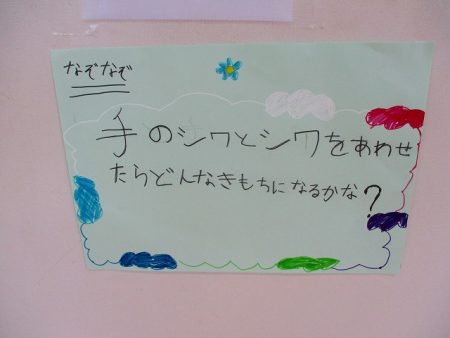 なぞなぞ
手のシワとシワをあわせ
たらどんなきもちになるかな?